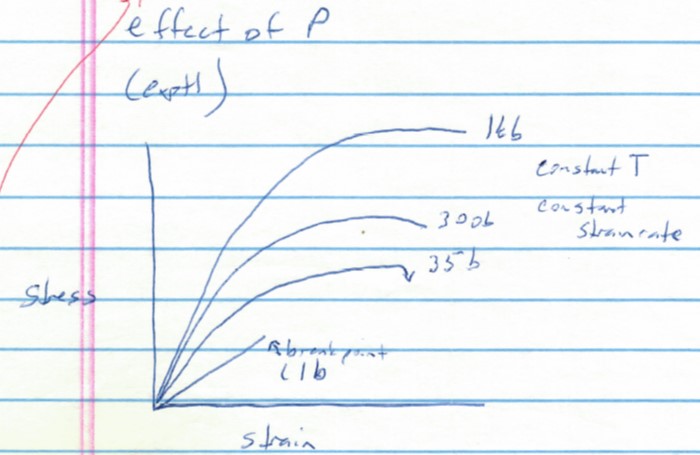 effect of P
(exptl)
1kb
constant T
constant
strain rate
300b
35b
stress
breakpoint
(1b
strain